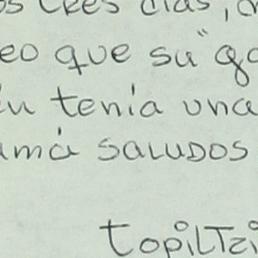 os tres días,
eo que su "ga
tenía una
má saludos
topiltzi